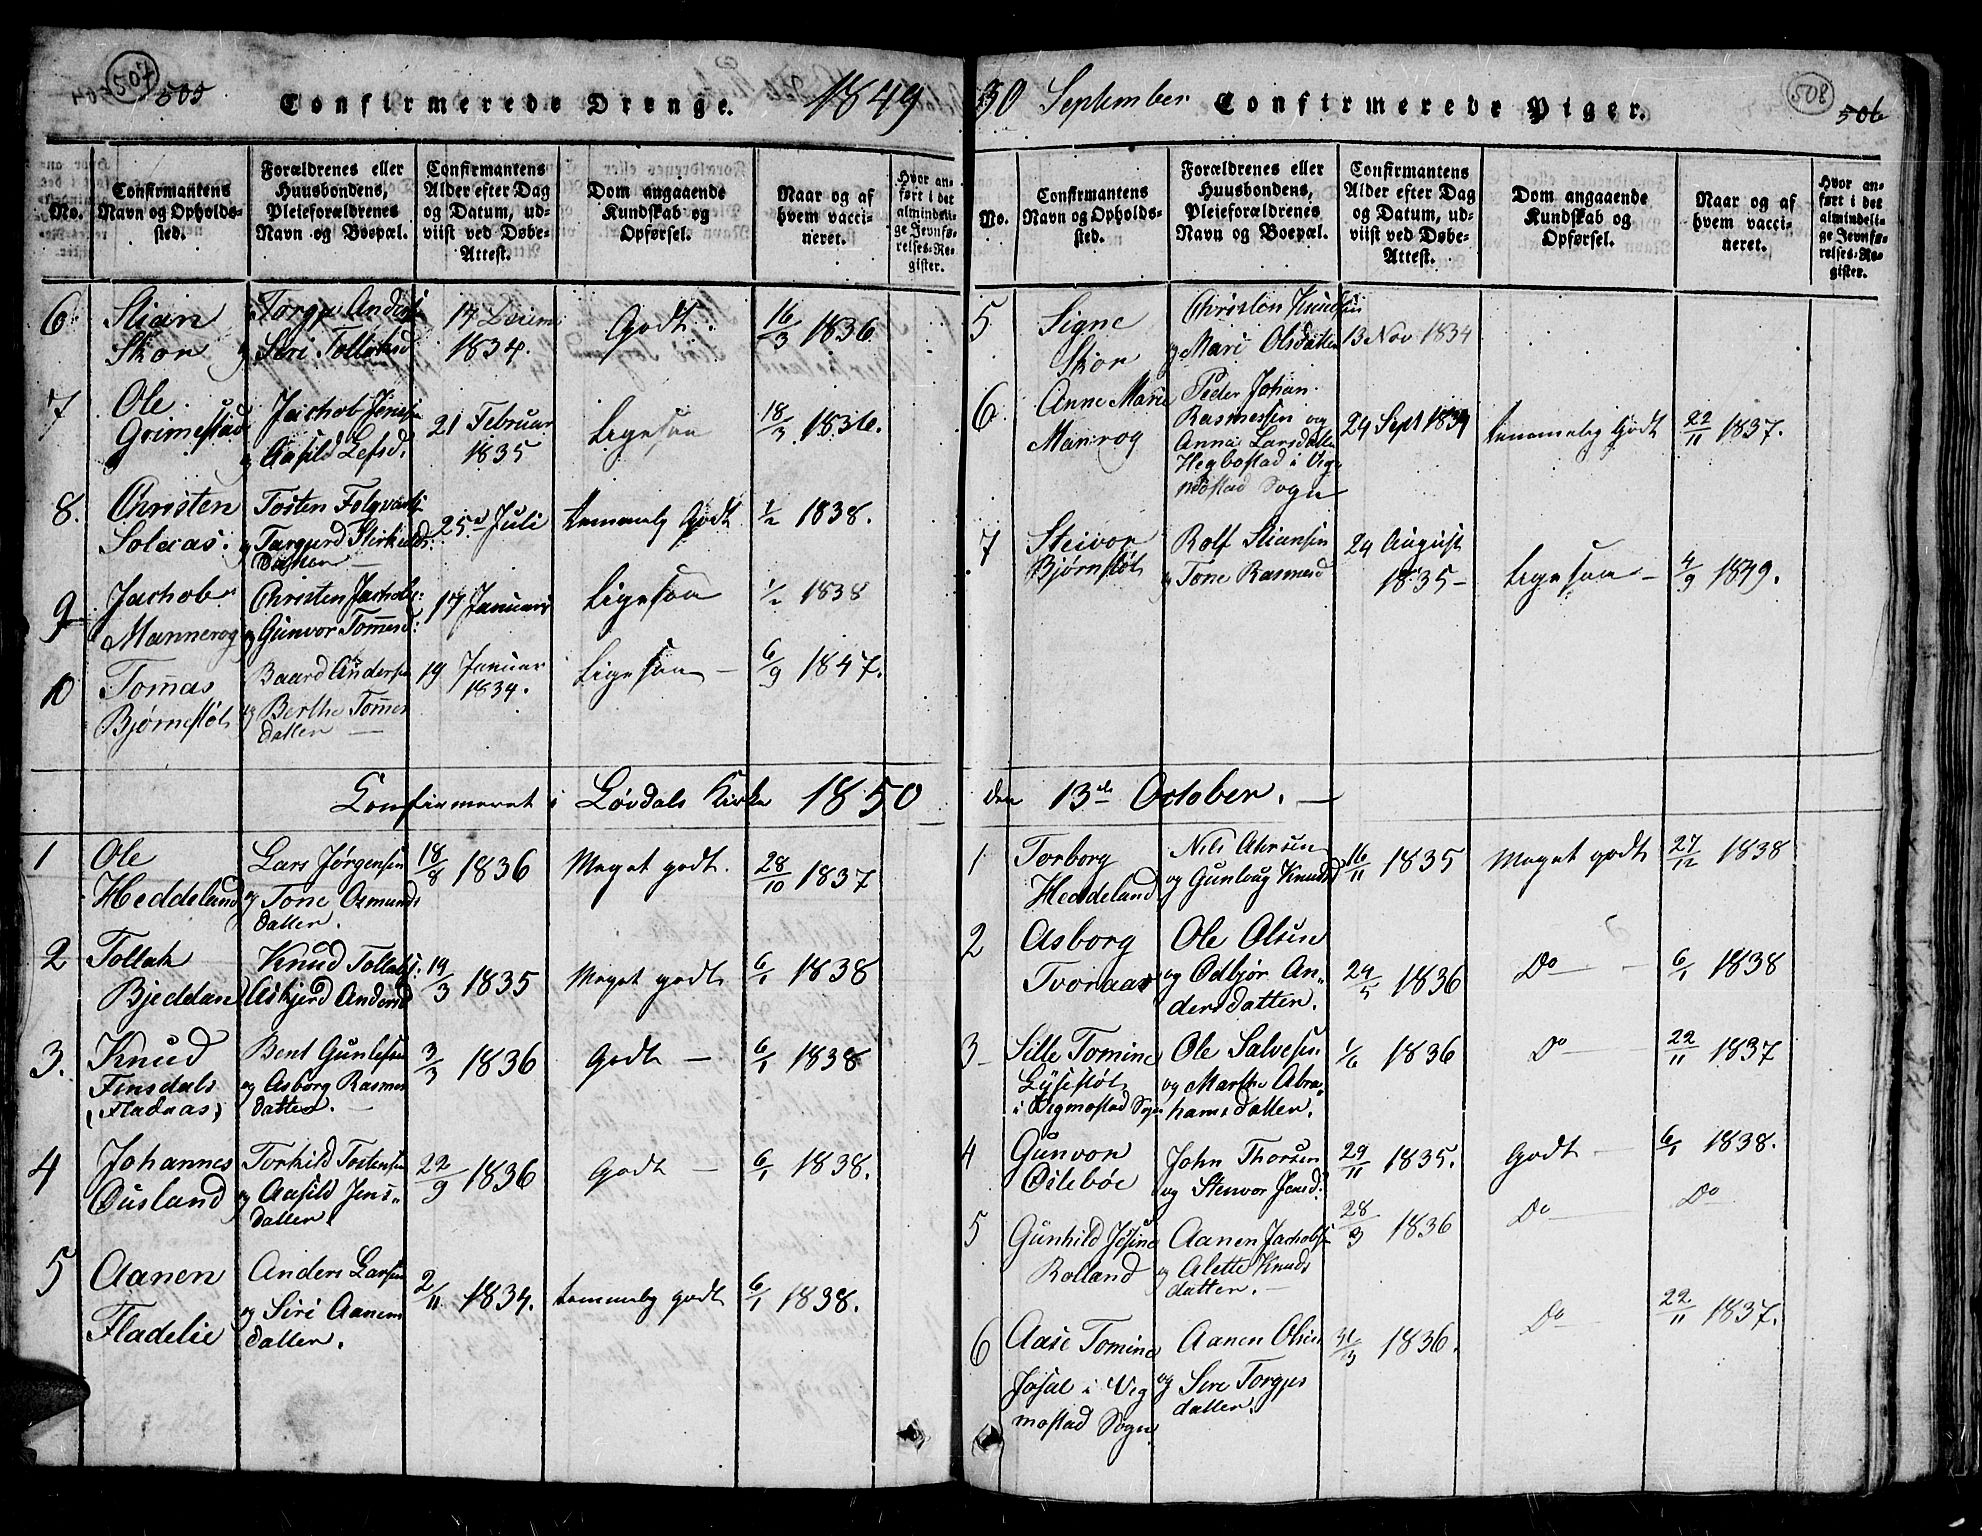 507 505
Confirmerede Drenge. 1849
No.
Confirmantens Navn og Opholdssted.
Forældrenes eller Huusbondens, Pleieforældrenes Navn og Boepæl.
Confirmantens Alder efter Dag og Datum, udviist ved Døbe-Attest.
Dom angaaende Kundskab og Opførsel.
Naar og af hvem vaccineret.
Hvor anført i det almindelige Jevnførelses-Register.
6 Stian Skor
Torgju Anders
og Siri Tollaksd
1834.
Godt. 16/3 1836
7 Ole Grimestad
Jachob Jens
og Aasild Lefsd.
21 Februar 1835
Ligesaa 18/3 1836.
8. Christen Solaas.
Tosten
og Targierd
Datter
25 Juli
temmelig Godt 1/2 1838.
9 Jachob Mannerog
Christen Jachobs:
og Gunvor Tommesd:
17 Januar
Ligesaa 1/2 1838
10 Tomas Bjørnestøl
Baard Anders
og Berthe Tommes
datter —
19 Januar 1834.
Ligesaa — 6/9 1847.
Confirmeret i Løvdals Kirke 1850
1 Ole Heddeland
Lars Jørgensen
og Tone Osmunds
datter.
18/8 1836
Meget godt. 28/10 1837
2 Tollak Bjeddan
Knud Tollaks:
Askjerd Andersd
19/3 1835
Meget godt 6/1 1838
3. Knud Finsdals (Fladaas)
Bent Gunlefsen
og Asborg Rasmus
datter. —
3/3 1836
Godt — 6/1 1838
4 Johannes Ousland
Torkild Tostensen
og Aasild Jens-
datter.
22/9 1836
Godt — 6/1 1838.
5 Aanen Fladelie
Anders Larsen
og Siri Aanens
datter.
2/11 1834.
temmelig godt 6/1 1838.
30 September Confirmerede Piger. 508 506
No.
Confirmantens Navn og Opholdssted.
Forældrenes eller Huusbondens, Pleieforældrenes Navn og Boepæl.
Confirmantens Alder efter Dag og Datum, udviist ved Døbe-Attest.
Dom angaaende Kundskab og Opførsel.
Naar og af hvem vaccineret.
Hvor anført i det almindelige Jevnførelses-Register.
5 Signe Skor
Christen Knudsen
og Mari Olsdatter
13 Nov 1834
6 Anne Marie Manrog
Peder Johan
Rasmessen og
Anna Larsdatter
Hegbostad i Vig-
mostad Sogn
24 Sept 1834
temmelig Godt 22/11 1837.
7 Steivor Bjørnstøl
Rolf Stiansen
og Tone Rasmusd
24 August 1835 —
Ligesaa — 4/9 1849.
den 13de October. —
1 Torborg Heddeland
Nils
og Gunloug Knudsd
16/11 1835
Meget godt 27/12 1838
2 Asborg Tvoraas
Ole Olsen
og Odbjør An-
dersdatter.
24/5 1836
Do — 6/1 1838
3 Sille Tomine Lysestøl i Vigmostad Sogn
Ole Salvesen
og Marthe Abra-
hamsdatter.
1/6 1836
Do — 22/11 1837
4 Gunvor Oilebøe
John Thorsen
og Stenvor Jensd:
29/11 1835.
Godt — 6/1 1838.
5 Gunhild Josine Rolland
Aanen Jachobsen
og Alette Knuds
datter. —
28/3 1836
Do — Do
6 Aase Tomine Josal i Vigmostad Sogn.
Aanen Olsen
og Sire Torgjus
datter.
31/3 1836.
Do — 22/11 1837.